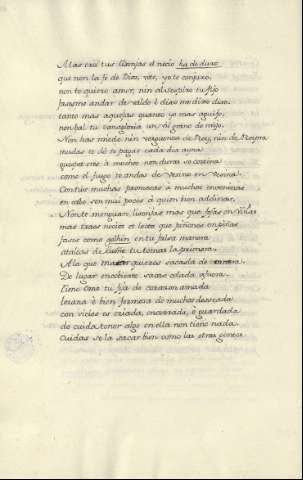 Mas con tus llisonjas el necio ha de duro
que non la fe de Dios, vete, yo te conjuro.
non te quiero amor, nin al suspiro tu fijo
fasesme andar de valde è dises me dises digo.
tanto mas aquejas quanto yo mas aguijo.
non bal tu vanagloria un vil grano de mijo.
Non has miedo nin vergüensa de Rey, nin de Reyna
mudas te dó te pagas cada dia ayna
queprel me à muchos non duras so cosina
como el fuego te andas de vesina en vesina.
Con tus muchas promesas à muchos envelinas
en cabo son mui pocos à quien bien adelinas.
Non te menguan lisonjas mas que fojas en viñas
mas traes necios et locos que piñones en piñas
fases como golhin en tu falsa manera
atalcas de lueñe tu tomas la primera
A la que matar quieres sacasla de carrera.
De lugar encobierto sacas celada afuera.
Tiene ome su fija de corazon amada
loxana è bien fermosa de muchos deseada
con vicios es criada, encerrada, è guardada
do cuida tener algo en ella non tiene nada.
Cuidan se la casar bien como las otras gentes